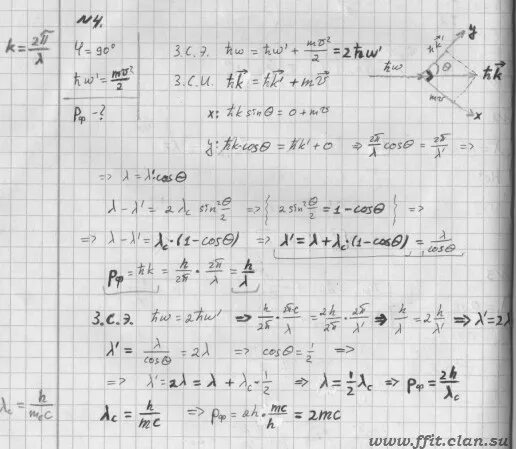 №4.
k = 2π/λ
φ = 90°
ħω' = mv²/2
Pф - ?
З.С.Э. ħω = ħω' + mv²/2 = 2ħω'
З.С.И. ħk⃗ = ħk⃗' + mv⃗
x: ħk sinθ = 0 + mv
y: ħk·cosθ = ħk' + 0 ⇒ 2π/λ cosθ = 2π/λ' ⇒
ħω ħk⃗' y θ ħk⃗ mv x
⇒ λ = λ'cosθ
λ - λ' = 2λc sin²θ/2 ⇒ { 2sin²θ/2 = 1 - cosθ } ⇒
⇒ λ - λ' = λc·(1 - cosθ) ⇒ λ' = λ + λc·(1 - cosθ) = λ/cosθ
Pф = ħk = h/2π · 2π/λ = h/λ
З.С.Э. ħω = 2ħω' ⇒ h/2π · 2πc/λ = 2h/2π · 2π/λ' ⇒ h/λ = 2 h/λ' ⇒ λ' = 2λ
λ' = λ/cosθ = 2λ ⇒ cosθ = 1/2 ⇒
⇒ λ' = 2λ = λ + λc·1/2 ⇒ λ = 1/2 λc ⇒ Pф = 2h/λc
λc = h/mec
λc = h/mc ⇒ Pф = 2h·mc/h = 2mc
www.ffit.clan.su